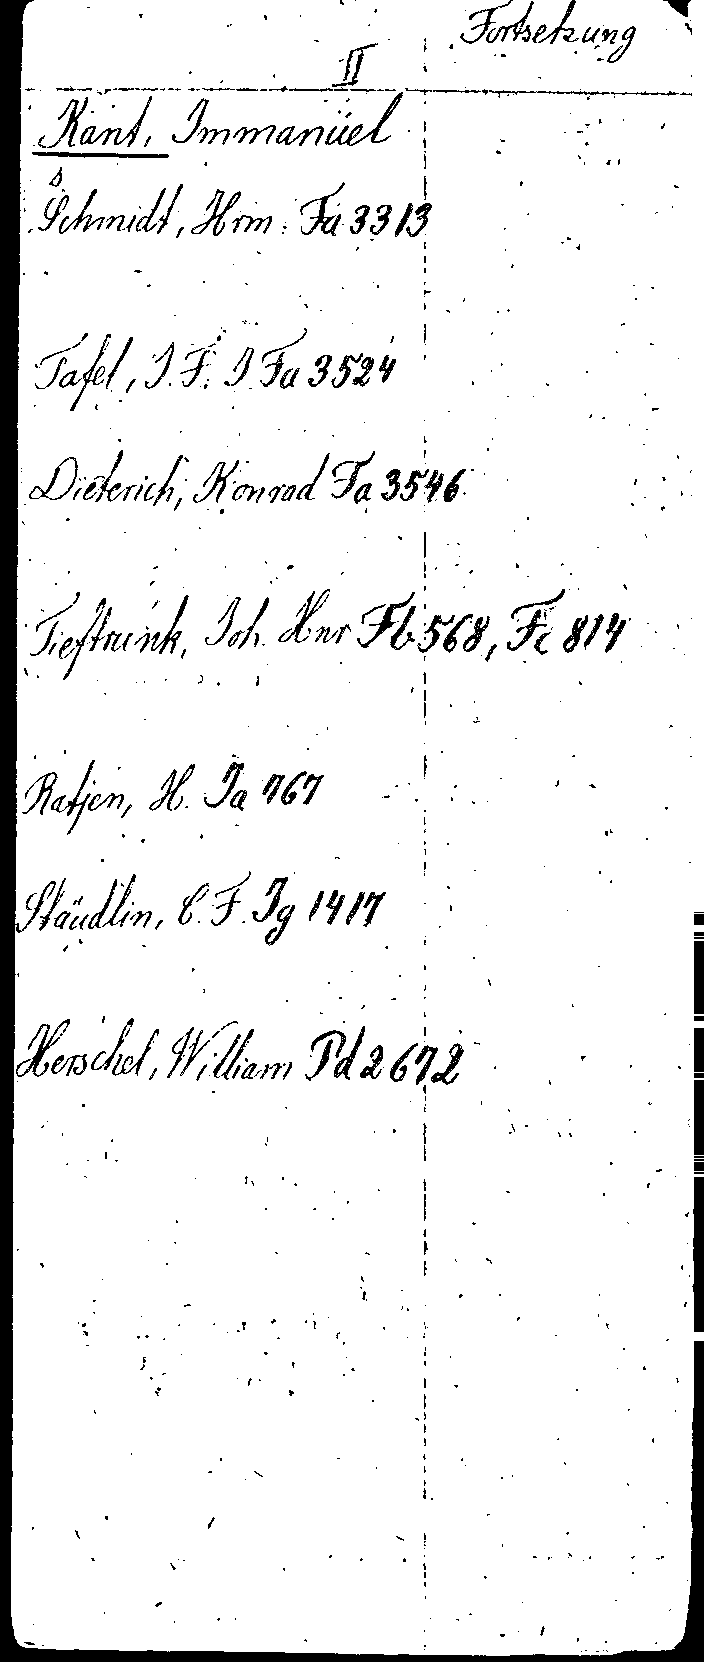 Fortsetzung
II
Kant, Immanuel
s
Schmidt, Hrm. Fa 3313
Tafel, J. F. I Fa 3524
Dieterich, Konrad Fa 3546
Tieftrunk, Joh. Hnr Fb 568, Fc 814
Ratjen, H. Ja 767
Stäudlin, C. F. Jg 1417
Herschel, William Pd 2672